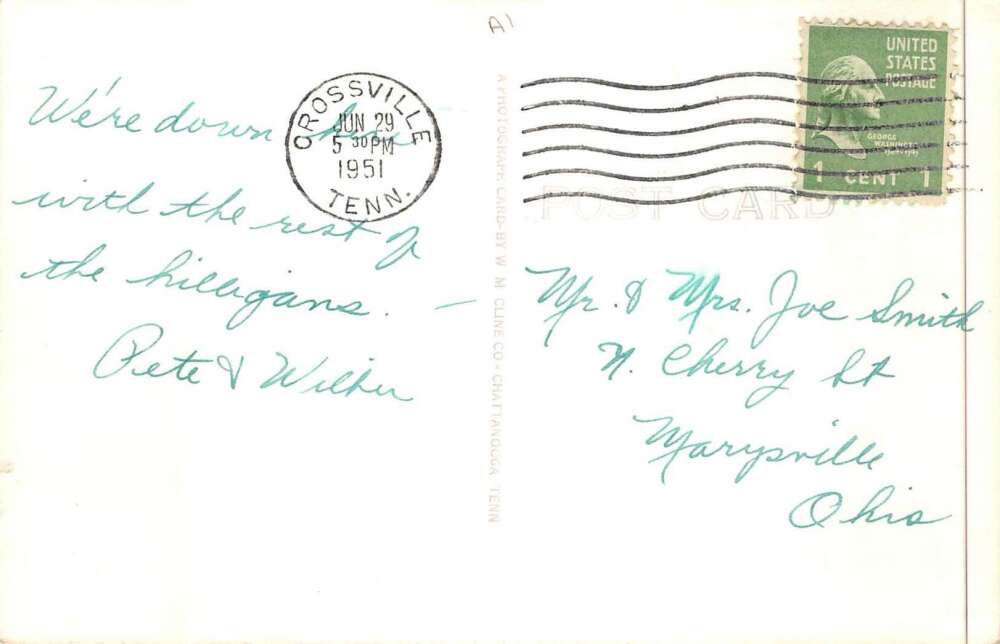 A1
We're down here
with the rest of
the hilligans. —
Pete & Wilber
CROSSVILLE
JUN 29
5 30 PM
1951
TENN.
A PHOTOGRAPH CARD-BY W. M. CLINE CO-CHATTANOOGA TENN
UNITED
STATES
POSTAGE
GEORGE
WASHINGTON
1 CENT 1
POST CARD
Mr. & Mrs. Joe Smith
N. Cherry St
Marysville
Ohio